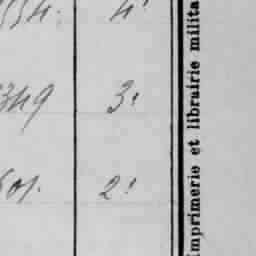 4.
3349 3.
801. 2.
Imprimerie et librairie milita